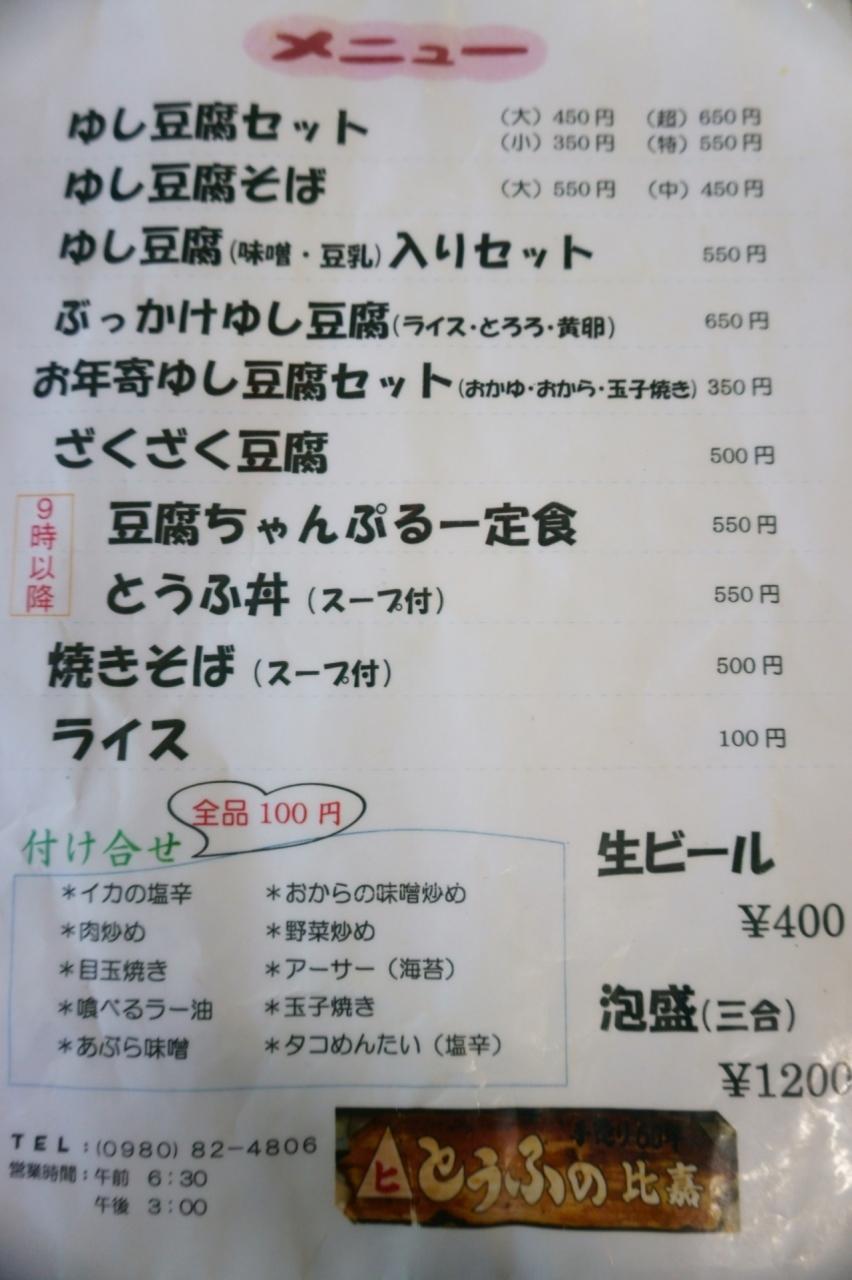 メニュー
ゆし豆腐セット （大）450円 （超）650円
（小）350円 （特）550円
ゆし豆腐そば （大）550円 （中）450円
ゆし豆腐(味噌・豆乳)入りセット 550円
ぶっかけゆし豆腐(ライス・とろろ・黄卵) 650円
お年寄ゆし豆腐セット(おかゆ・おから・玉子焼き) 350円
ざくざく豆腐 500円
9時以降
豆腐ちゃんぷるー定食 550円
とうふ丼（スープ付） 550円
焼きそば（スープ付） 500円
ライス 100円
全品100円
付け合せ
＊イカの塩辛 ＊おからの味噌炒め
＊肉炒め ＊野菜炒め
＊目玉焼き ＊アーサー（海苔）
＊喰べるラー油 ＊玉子焼き
＊あぶら味噌 ＊タコめんたい（塩辛）
生ビール
¥400
泡盛(三合)
¥1200
TEL：(0980) 82－4806
営業時間：午前 6：30
午後 3：00
手造り60年
ヒ とうふの比嘉